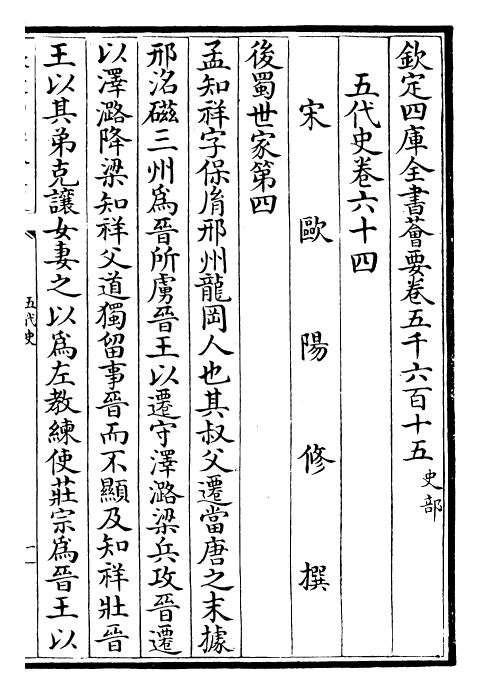 欽定四庫全書薈要卷五千六百十五史部
五代史卷六十四
宋歐陽修撰
後蜀世家第四
孟知祥字保胤邢州龍岡人也其叔父遷當唐之末據
邢洺磁三州為晉所虜晉王以遷守澤潞梁兵攻晉遷
以澤潞降梁知祥父道獨留事晉而不顯及知祥壯晉
王以其弟克讓女妻之以為左教練使莊宗為晉王以
五代史
一